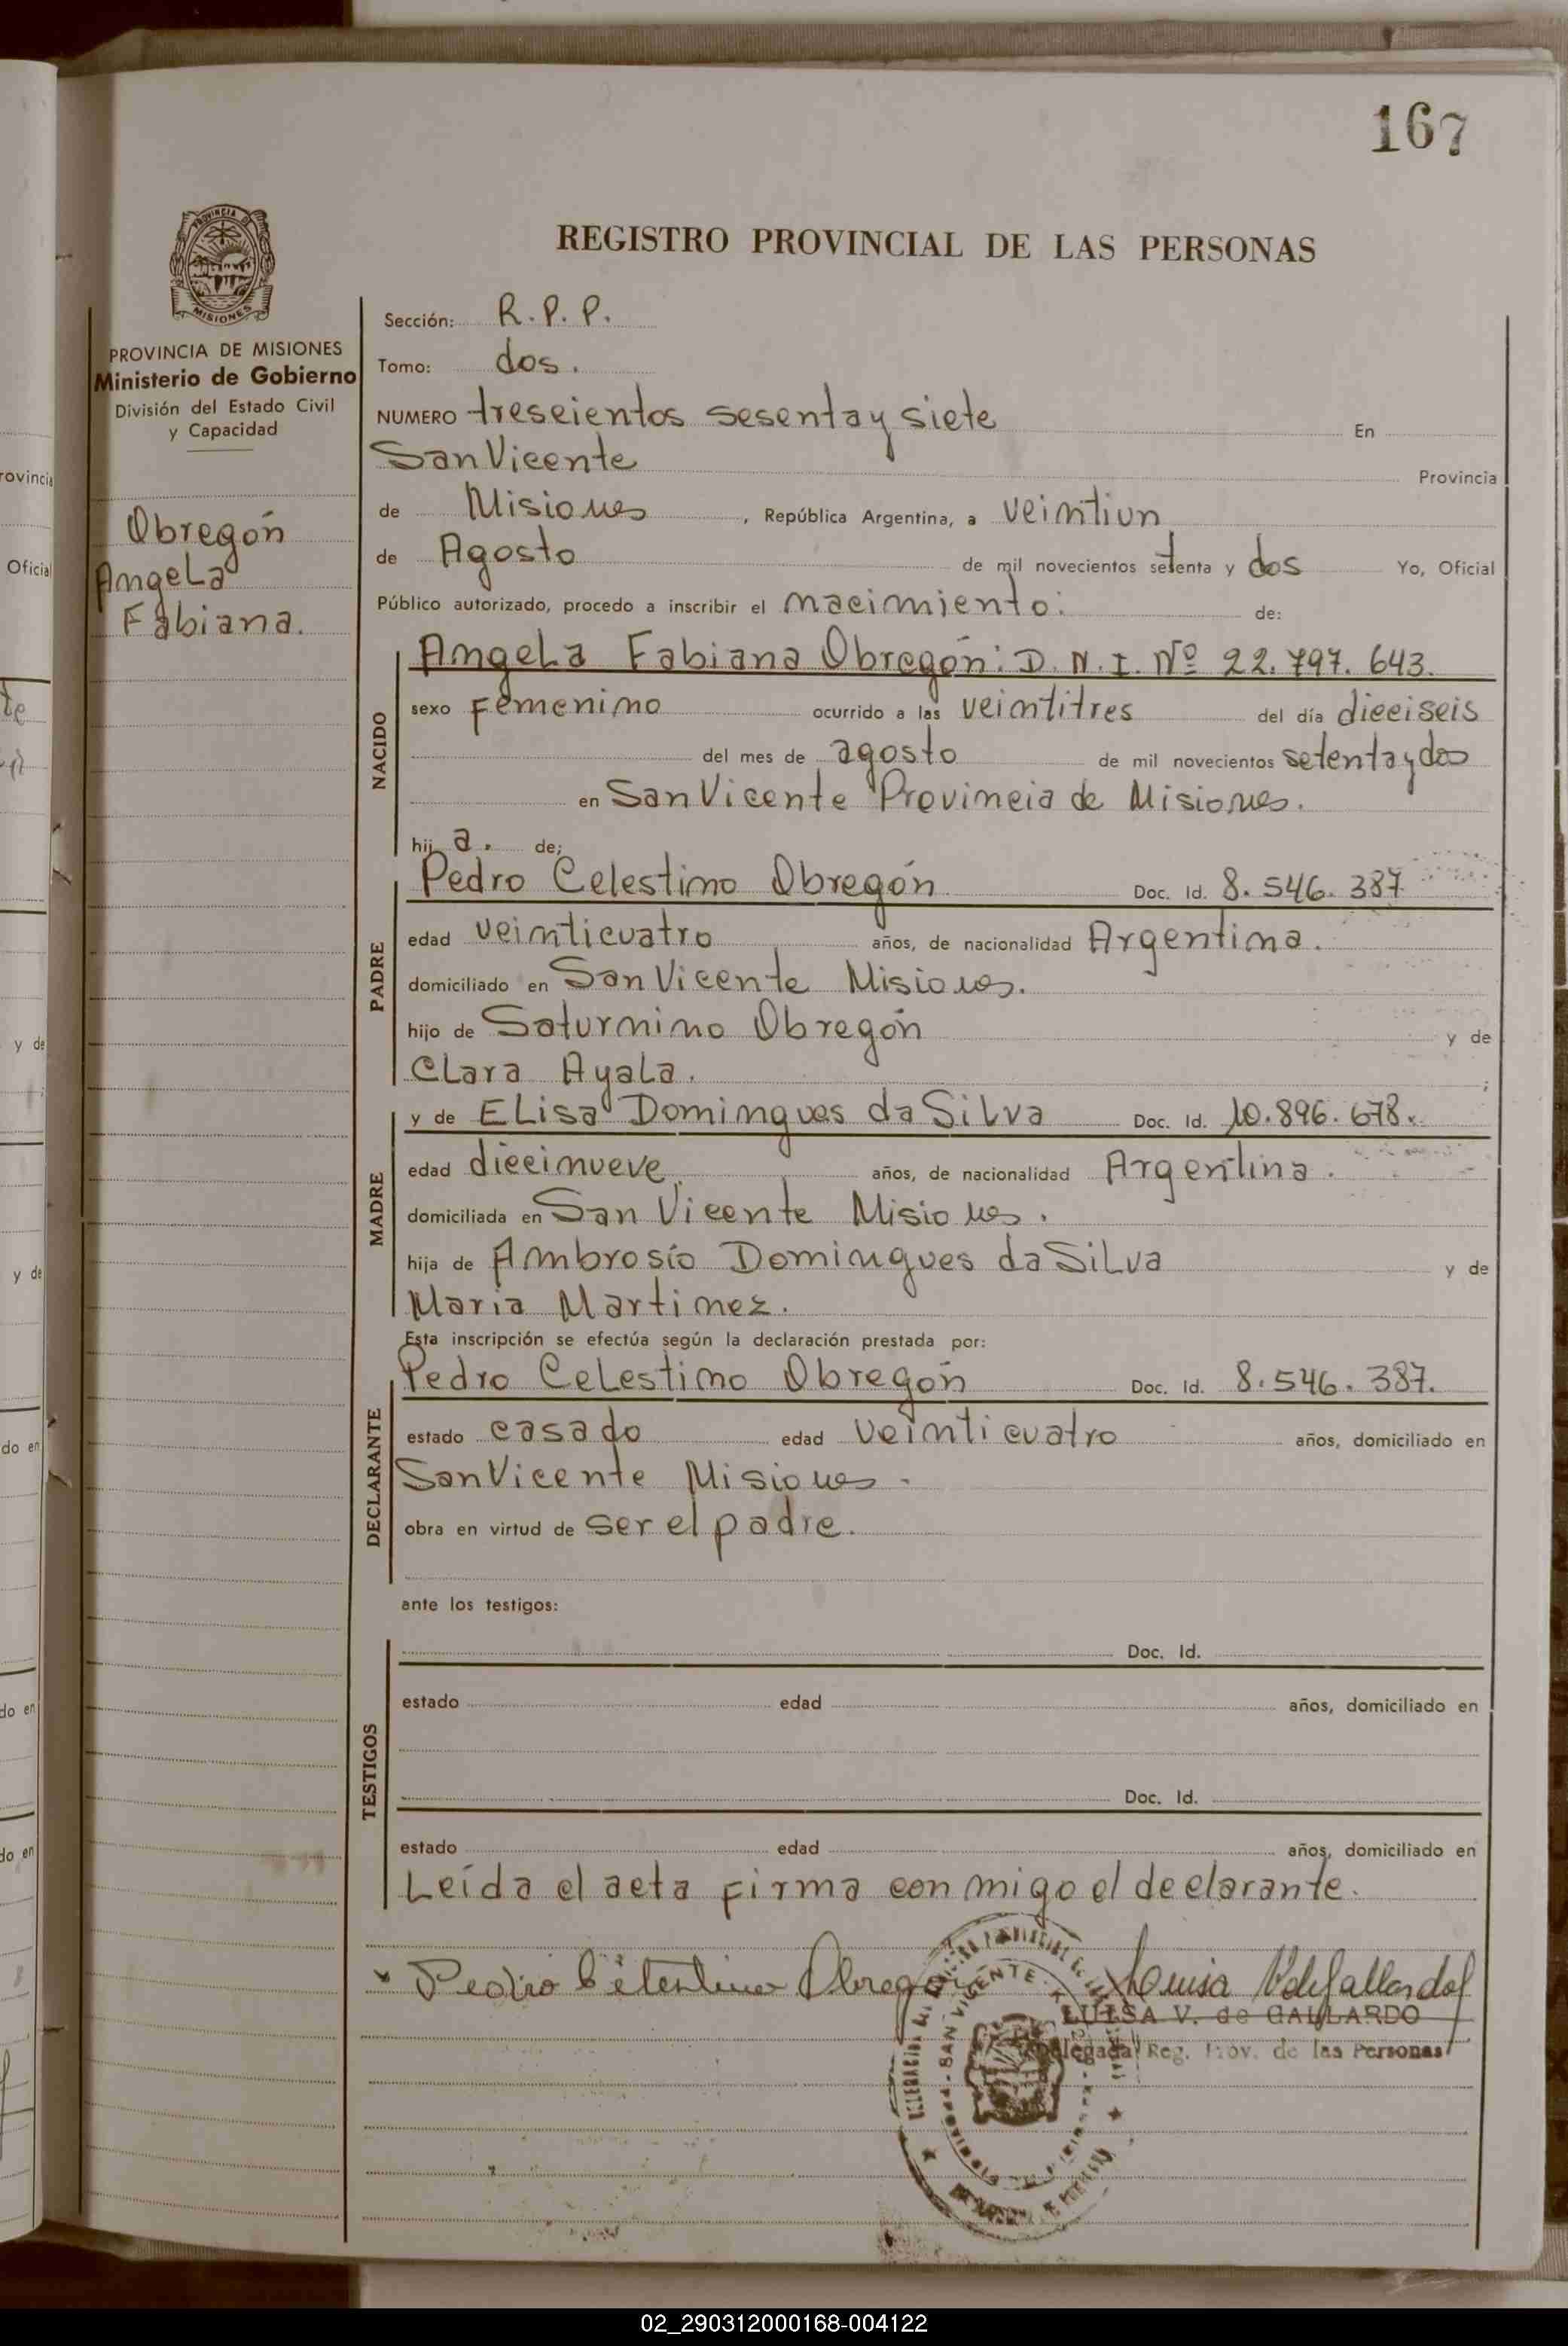 167
REGISTRO PROVINCIAL DE LAS PERSONAS
PROVINCIA DE
MISIONES
PROVINCIA DE MISIONES
Ministerio de Gobierno
División del Estado Civil
y Capacidad
Obregón
Angela
Fabiana.
Sección: R. P. P.
Tomo: dos.
NUMERO trescientos sesenta y siete En
San Vicente Provincia
de Misiones, República Argentina, a veintiun
de Agosto de mil novecientos setenta y dos Yo, Oficial
Público autorizado, procedo a inscribir el nacimiento: de:
NACIDO
Angela Fabiana Obregón: D. N. I. Nº 22.797.643.
sexo Femenino ocurrido a las veintitres del día dieciseis
del mes de agosto de mil novecientos setenta y dos
en San Vicente Provincia de Misiones.
hij a. de;
PADRE
Pedro Celestino Obregón Doc. Id. 8.546.387
edad veinticuatro años, de nacionalidad Argentina.
domiciliado en San Vicente Misiones.
hijo de Saturnino Obregón y de
Clara Ayala. ;
MADRE
y de Elisa Domingues da Silva Doc. Id. 10.896.678.
edad diecinueve, años, de nacionalidad Argentina.
domiciliada en San Vicente Misiones.
hija de Ambrosio Domingues da Silva y de
Maria Martinez.
Esta inscripción se efectúa según la declaración prestada por:
DECLARANTE
Pedro Celestino Obregón Doc. Id. 8.546.387.
estado casado edad veinticuatro años, domiciliado en
San Vicente Misiones.
obra en virtud de ser el padre.
ante los testigos:
TESTIGOS
Doc. Id.
estado edad años, domiciliado en
Doc. Id.
estado edad años, domiciliado en
Leída el acta firma con migo el declarante.
Pedro Celestino Obregón
Luisa V de Gallardo
LUISA V. de GALLARDO
Delegada Reg. Prov. de las Personas
SAN VICENTE
rovincia
Oficial
te
y de
y de
do en
do en
do en
02_290312000168-004122